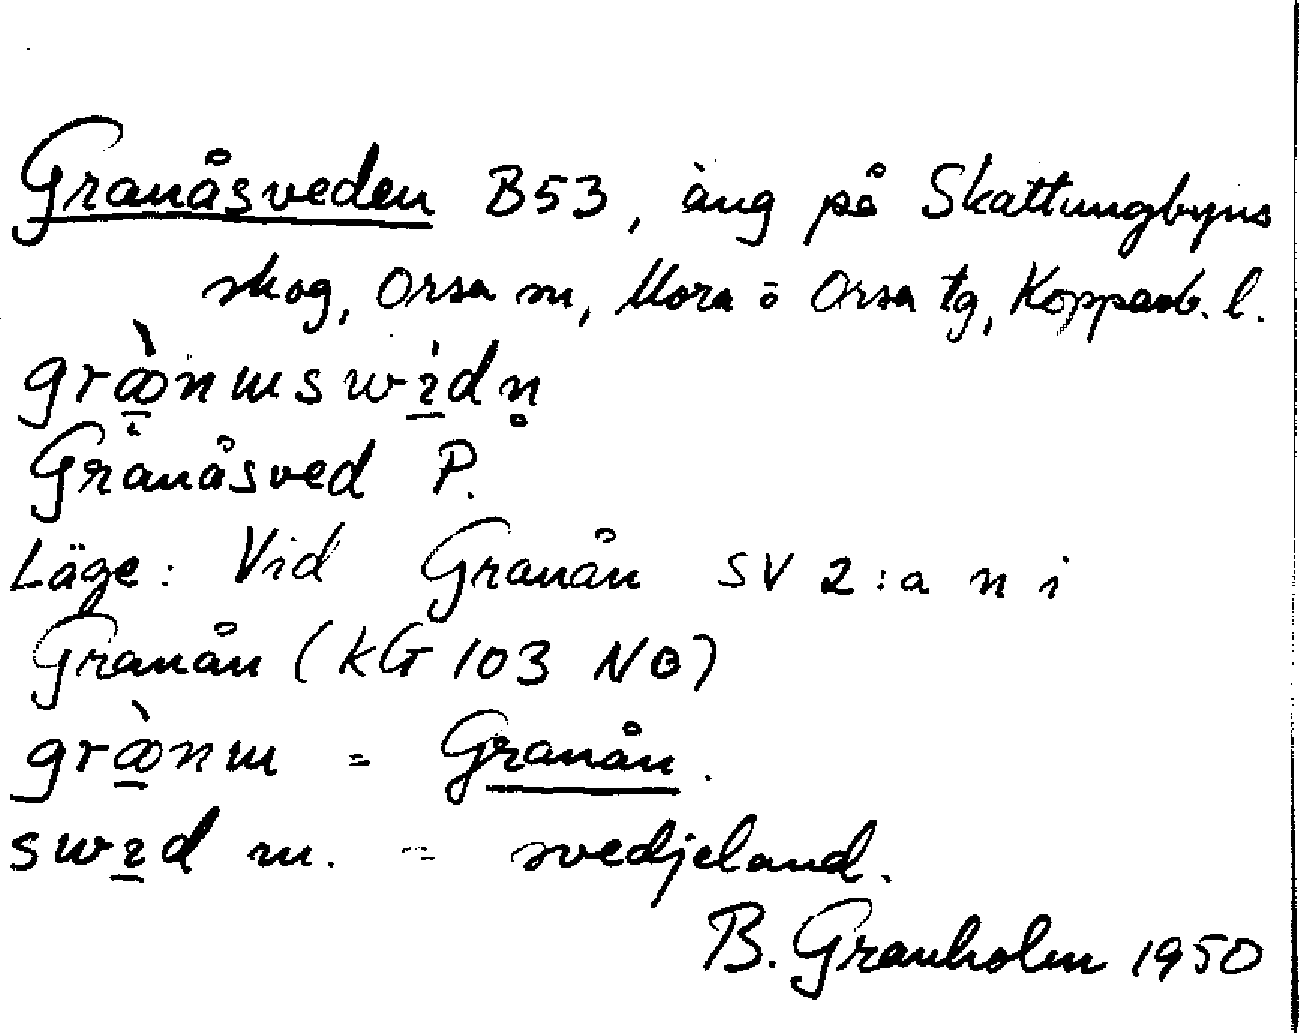 Granåsveden B53, äng på Skattungbyns
skog, Orsa sn, Mora o Orsa tg, Kopparb. l.
Granåsved P.
Läge: Vid Granån SV 2:a n i
Granån (KG 103 NO)
= Granån.
m. = svedjeland.
B. Granholm 1950